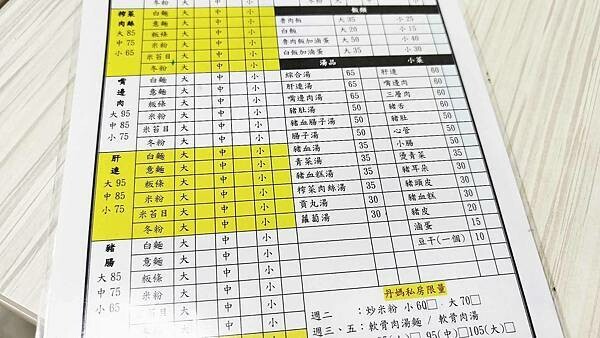 冬粉 大 中 小
榨菜肉絲
大 85
中 75
小 65
白麵 大 中 小
意麵 大 中 小
粄條 大 中 小
米粉 大 中 小
米苔目 大 中 小
冬粉 大 中 小
嘴邊肉
大 95
中 85
小 75
白麵 大 中 小
意麵 大 中 小
粄條 大 中 小
米粉 大 中 小
米苔目 大 中 小
冬粉 大 中 小
肝連
大 95
中 85
小 75
白麵 大 中 小
意麵 大 中 小
粄條 大 中 小
米粉 大 中 小
米苔目 大 中 小
冬粉 大 中 小
豬腸
大 85
中 75
小 65
白麵 大 中 小
意麵 大 中 小
粄條 大 中 小
米粉 大 中 小
米苔目 大 中 小
冬粉 大 中 小
飯類
魯肉飯 大 35 小 25
白飯 大 20 小 15
魯肉飯加滷蛋 大 50 小 40
白飯加滷蛋 大 35 小 30
湯品
綜合湯 65
肝連湯 65
嘴邊肉湯 65
豬肚湯 50
豬血腸子湯 50
腸子湯 50
豬血湯 35
青菜湯 35
豬血糕湯 35
榨菜肉絲湯 35
貢丸湯 30
蘿蔔湯 30
小菜
肝連 60
嘴邊肉 60
三層肉 60
豬舌 50
豬肚 50
心管 50
小腸 50
燙青菜 35
豬耳朵 30
豬頭皮 30
豬血糕 30
豬皮 20
滷蛋 15
豆干(一個) 10
丹媽私房限量
週二 : 炒米粉 小 60□、大 70□
週三、五 : 軟骨肉湯麵 / 軟骨肉湯
95(中)□ 105(大)□